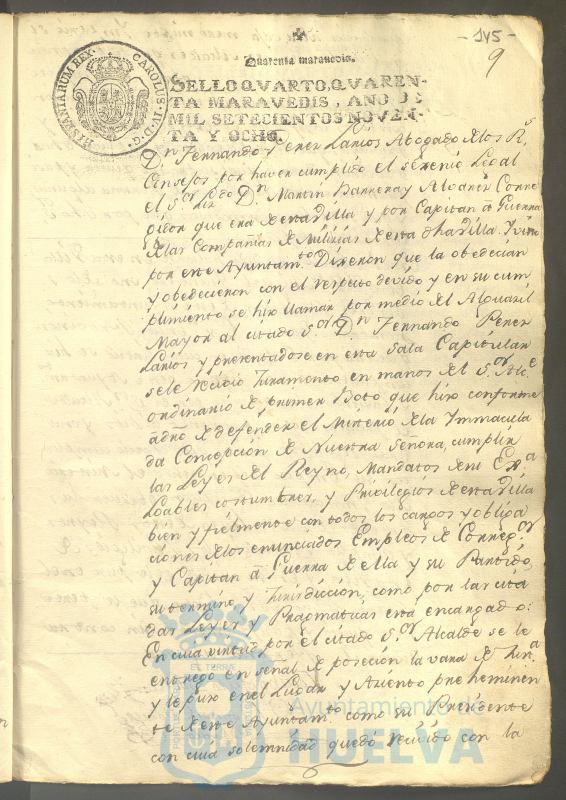 -145-
9
HISPANIARUM REX. CAROLUS IV D.G.
Quarenta maravedis.
SELLO QVARTO, QVAREN-
TA MARAVEDIS, AÑO DE
MIL SETECIENTOS NOVEN-
TA Y OCHO.
Dn Fernando Perez Larios Abogado de los Rs
Consejos por haver cumplido el sexenio Legal
el Sor Dn Martin Barrera y Alvarez Corre
gidor que era de esta Villa y por Capitan a Guerra
de las Compañias de Milicias de esta dha Villa. Y visto
por este Ayuntamto Dixeron que la obedecian
y obedecieron con el respecto devido y en su cum
plimiento se hizo llamar por medio del Alguazil
Mayor al citado Sor Dn Fernando Perez
Larios y presentadose en esta Sala Capitular
se le recivio Juramento en manos del Sor Alce
ordinario de primer Voto que hizo conforme
a dro de defender el Misterio de la Immacula
da Concepcion de Nuestra Señora, cumplir
las Leyes del Reyno, Mandatos de su Exa
Loables costumbres, y Privilegios de esta Villa
bien y fielmente con todos los cargos y obliga
ciones de los enunciados Empleos de Corregor
y Capitan a Guerra de ella y su Partido,
su termino y Jurisdiccion, como por las cita
das Leyes y Pragmaticas esta encargado:
En cuia virtud por el citado Sor Alcalde se le
entrego en señal de posecion la vara de
y le puso en el Lugar y Asiento preheminen
te de este Ayuntamto como su Presidente
con cuia solemnidad quedó recivido con la
Ayuntamiento de
HUELVA